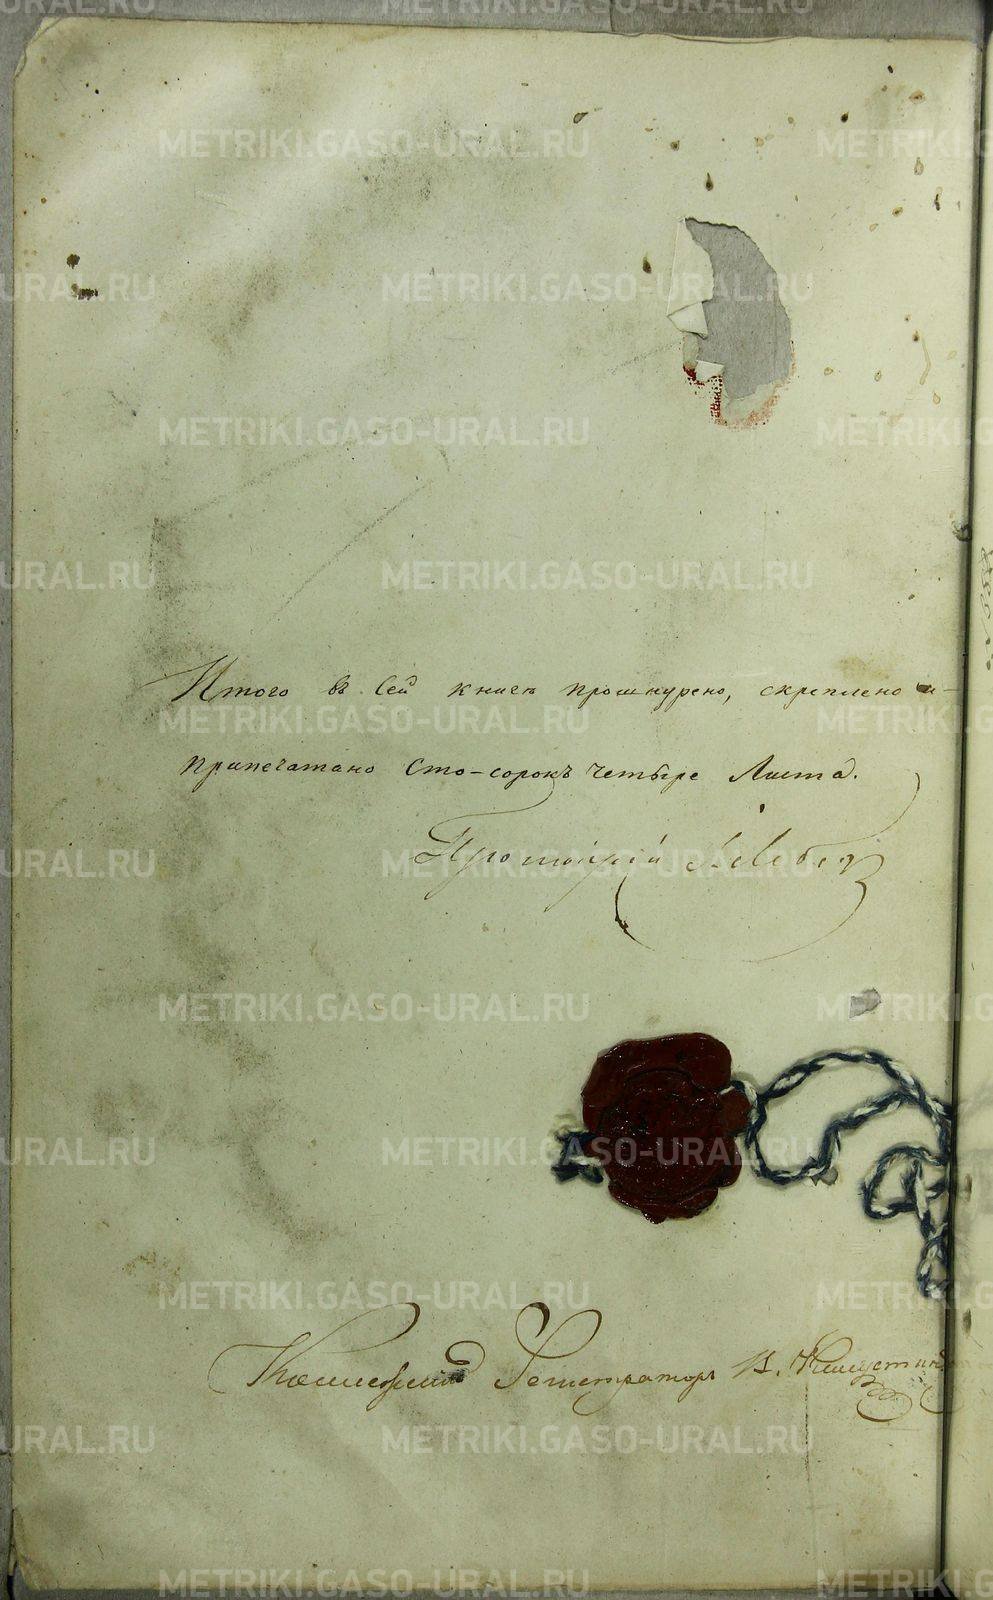 Итого въ сей книгѣ прошнурено, скреплено и
припечатано Сто-сорокъ четыре Листа.
Протоіерей
Коллежскій Регистраторъ
METRIKI.GASO-URAL.RU